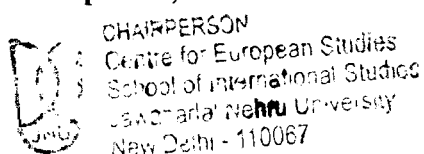 CHAIRPERSON
Centre for European Studies
School of International Studies
Jawaharlal Nehru University
New Delhi - 110067
JNU